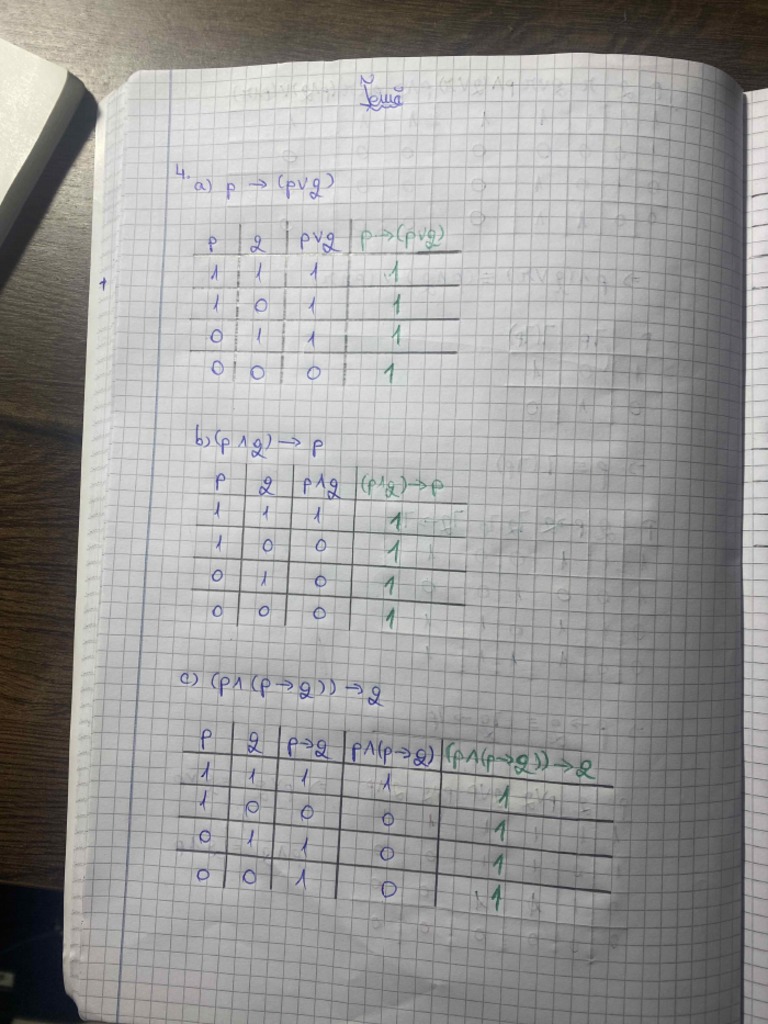 Temă
4. a) p → (p∨q)
p q p∨q p→(p∨q)
1 1 1 1
1 0 1 1
0 1 1 1
0 0 0 1
b) (p∧q) → p
p q p∧q (p∧q)→p
1 1 1 1
1 0 0 1
0 1 0 1
0 0 0 1
c) (p∧(p→q))→q
p q p→q p∧(p→q) (p∧(p→q))→q
1 1 1 1 1
1 0 0 0 1
0 1 1 0 1
0 0 1 0 1